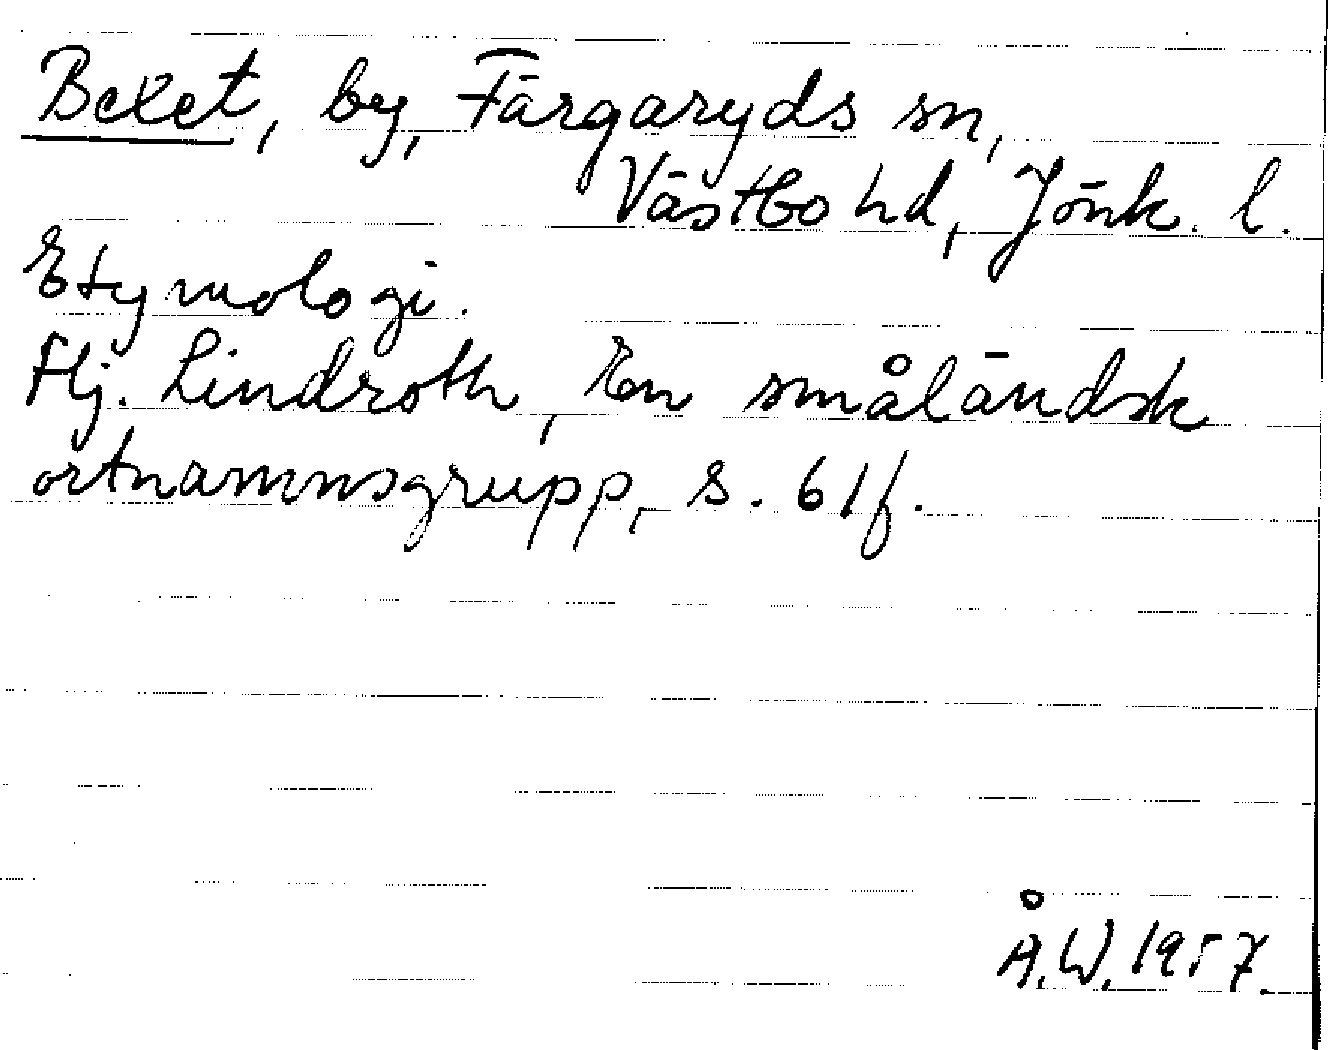 Bexet, by, Färgaryds sn,
Västbo hd, Jönk. l.
Etymologi.
Hj. Lindroth, En småländsk
ortnamnsgrupp, s. 61f.
Å.W. 1957.